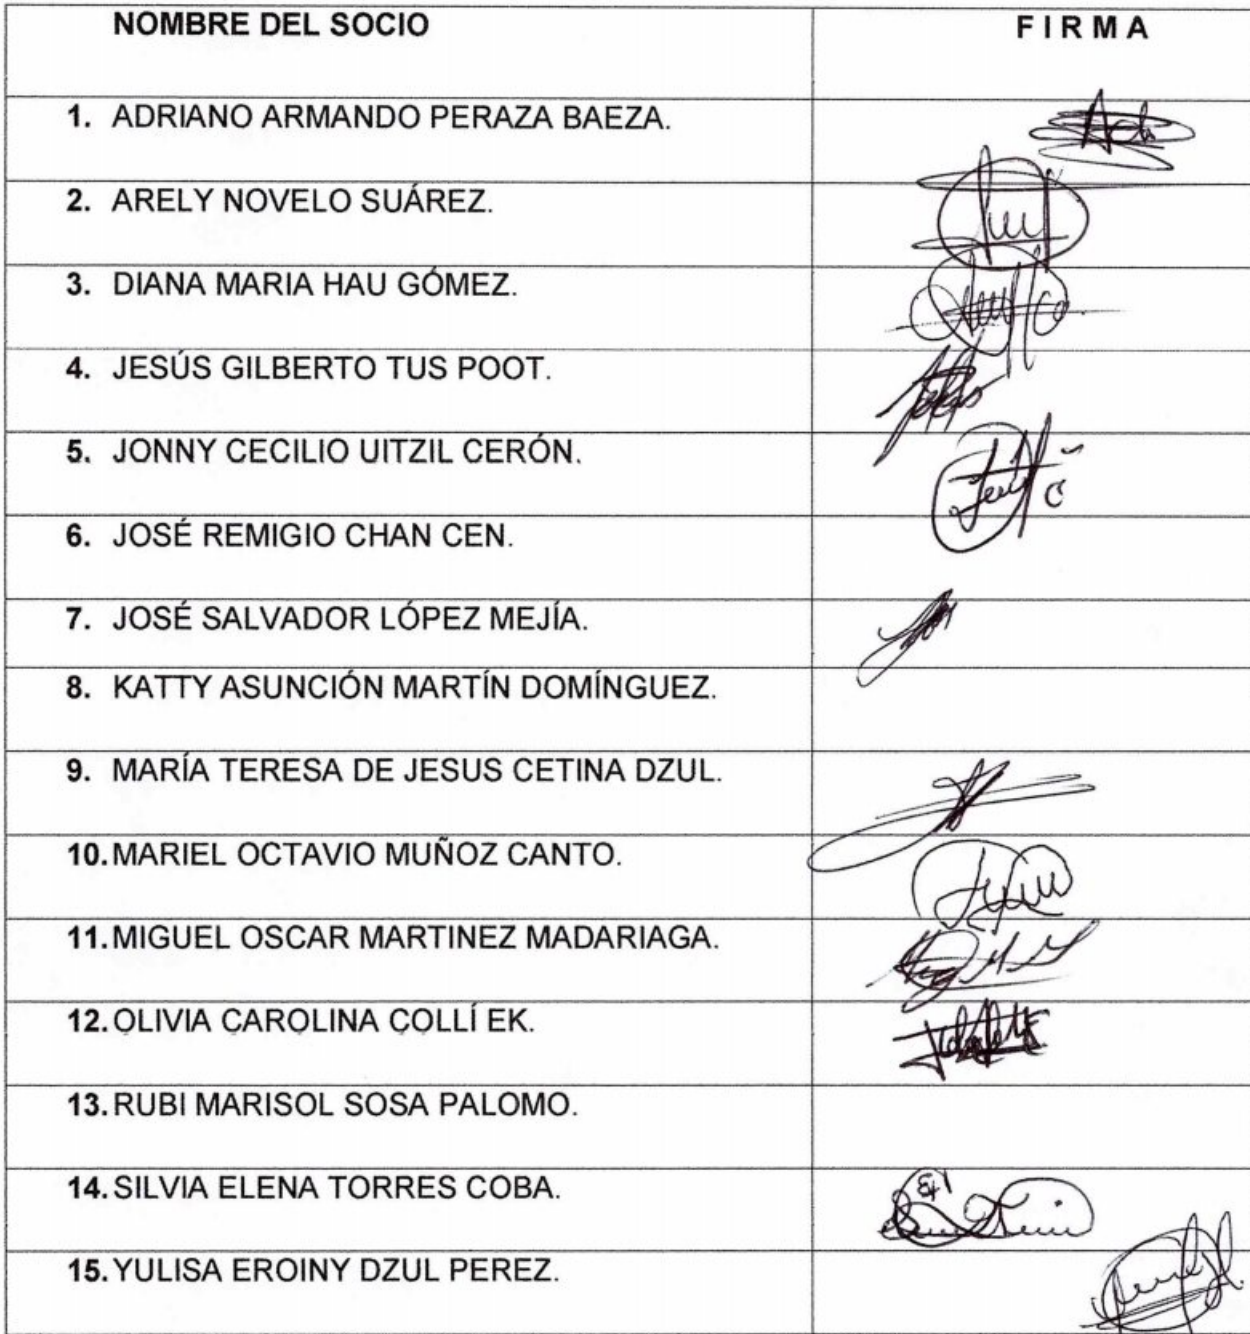 NOMBRE DEL SOCIO FIRMA
1. ADRIANO ARMANDO PERAZA BAEZA.
2. ARELY NOVELO SUÁREZ.
3. DIANA MARIA HAU GÓMEZ.
4. JESÚS GILBERTO TUS POOT.
5. JONNY CECILIO UITZIL CERÓN.
6. JOSÉ REMIGIO CHAN CEN.
7. JOSÉ SALVADOR LÓPEZ MEJÍA.
8. KATTY ASUNCIÓN MARTÍN DOMÍNGUEZ.
9. MARÍA TERESA DE JESUS CETINA DZUL.
10. MARIEL OCTAVIO MUÑOZ CANTO.
11. MIGUEL OSCAR MARTINEZ MADARIAGA.
12. OLIVIA CAROLINA COLLÍ EK.
13. RUBI MARISOL SOSA PALOMO.
14. SILVIA ELENA TORRES COBA.
15. YULISA EROINY DZUL PEREZ.